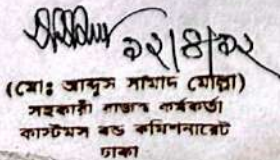 ২২/৪/২২
(মো: আব্দুস সামাদ মোল্লা)
সহকারী রাজস্ব কর্মকর্তা
কাস্টমস বন্ড কমিশনারেট
ঢাকা